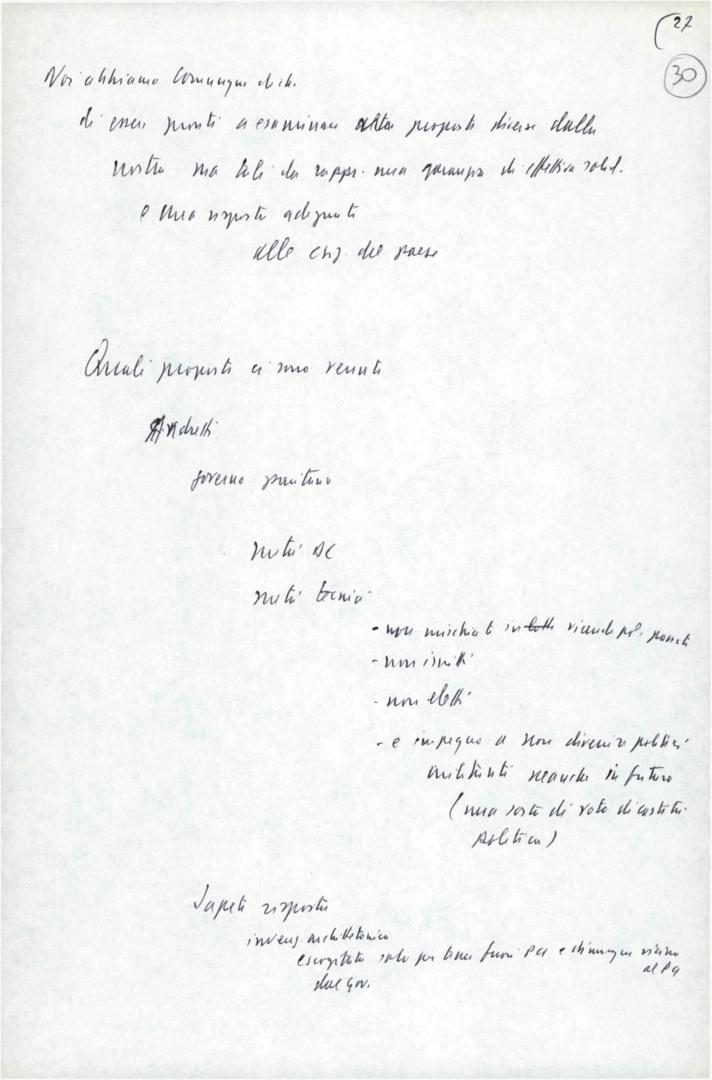 27
30
Noi abbiamo comunque dich.
di essere pronti a esaminare altre proposte diverse dalla
nostra ma tali da rappr. una garanzia di effettiva solid.
e una risposta adeguata
alle esig. del paese
Quali proposte ci sono venute
Andreotti
governo paritario
metà DC
metà tecnici
- non mischiati in lotte vicende pol. passate
- non iscritti
- non eletti
- e impegno a non divenire politici
militanti neanche in futuro
(una sorta di voto di castità
politica)
Sapete risposta
invenz. architettonica
escogitata solo per tener fuori PCI e chiunque vicino
al PCI
dal gov.